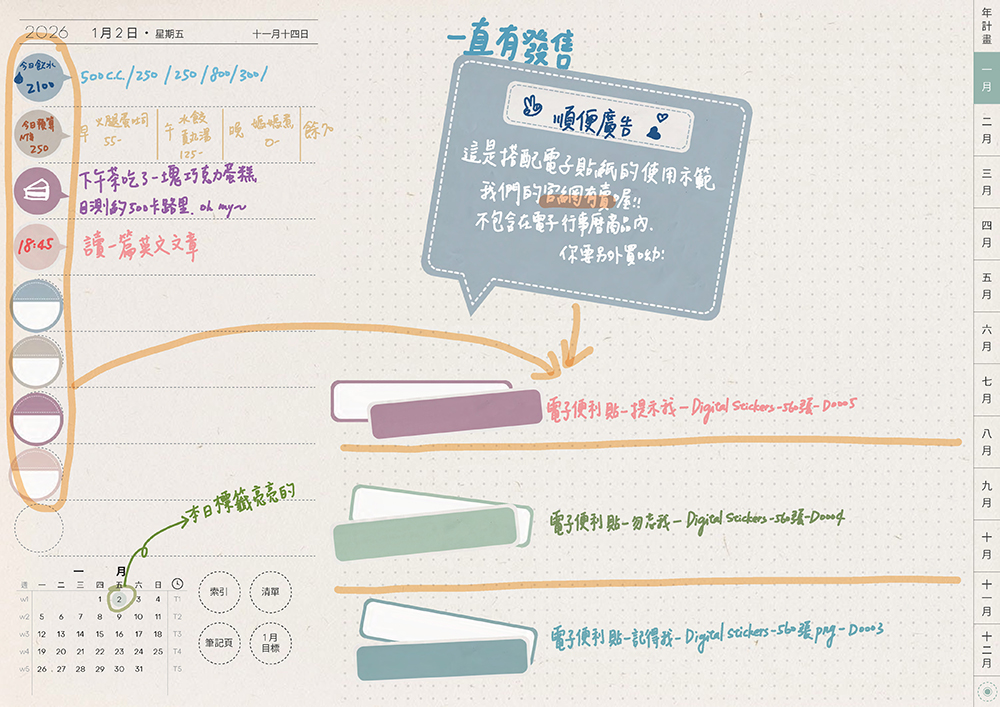 2026 1月2日・星期五 十一月十四日
今日飲水
2100
500c.c./250/250/800/300/
今日預算
NT$
250
早 火腿蛋吐司
55-
午 水餃
貢丸湯
125-
晚 媽媽煮
0-
餘70
下午茶吃了一塊巧克力蛋糕
目測約500卡路里. oh my~
18:45
讀一篇英文文章
本日標籤亮亮的
一月
週 一 二 三 四 五 六 日
W1 1 2 3 4 T1
W2 5 6 7 8 9 10 11 T2
W3 12 13 14 15 16 17 18 T3
W4 19 20 21 22 23 24 25 T4
W5 26 27 28 29 30 31 T5
索引
清單
筆記頁
1月
目標
一直有發售
順便廣告
這是搭配電子貼紙的使用示範
我們的官網有賣喔!!
不包含在電子行事曆商品內.
你要另外買呦!
電子便利貼-提示我-Digital Stickers-560張-D0005
電子便利貼-勿忘我-Digital Stickers-560張-D0004
電子便利貼-記得我-Digital Stickers-560張png-D0003
年計畫
一月
二月
三月
四月
五月
六月
七月
八月
九月
十月
十一月
十二月